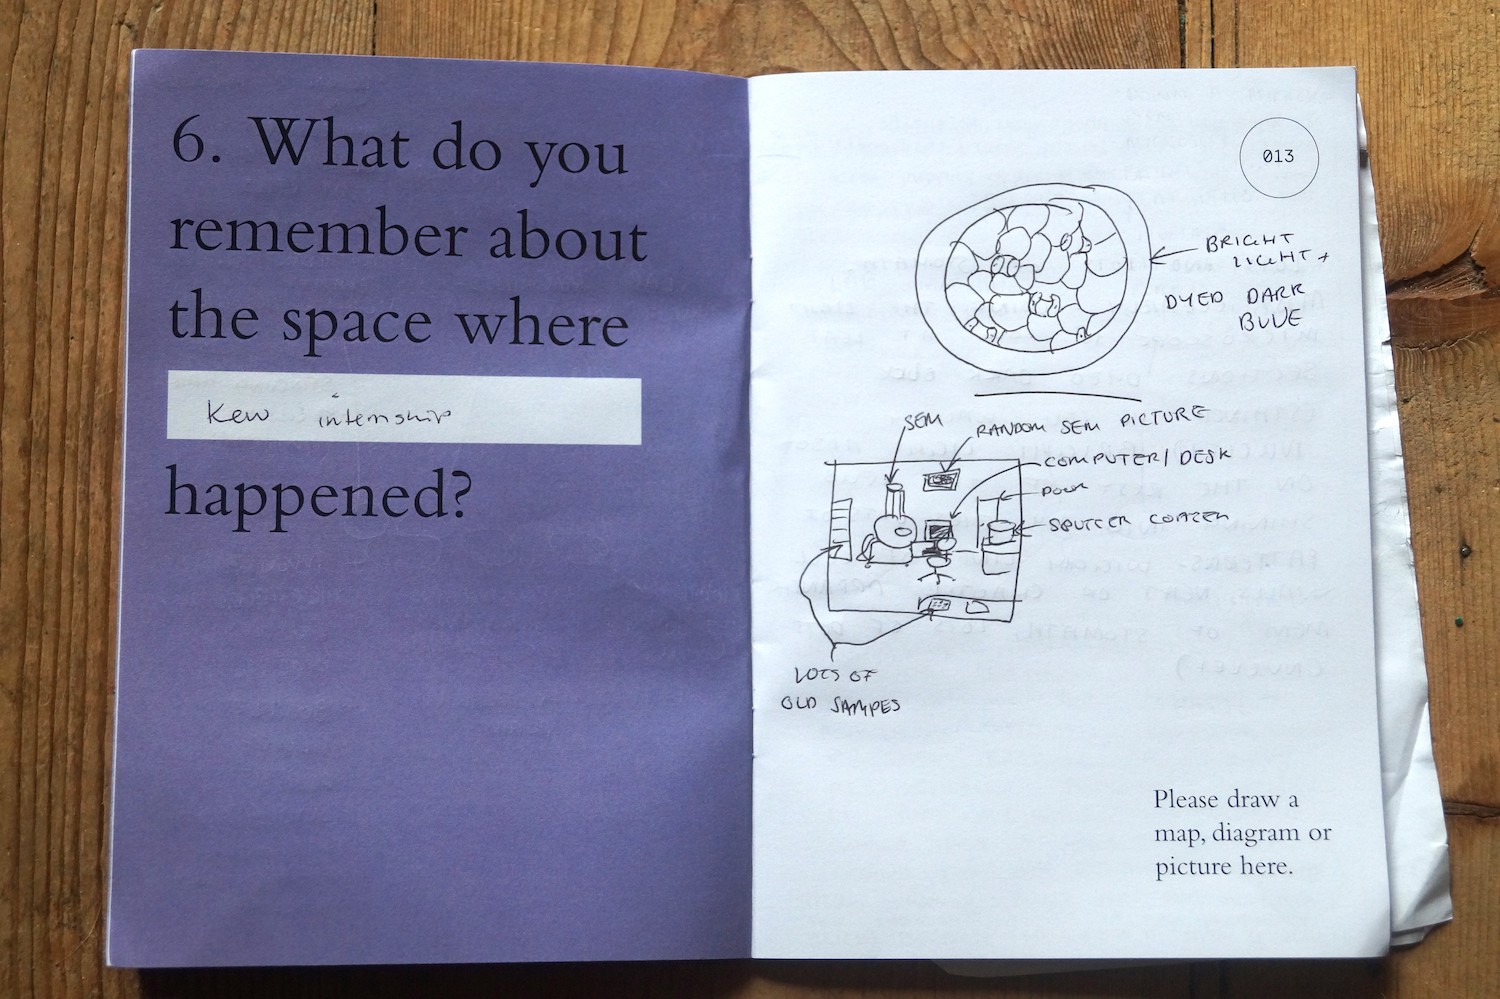 6. What do you
remember about
the space where
Kew internship
happened?
013
BRIGHT
LIGHT +
DYED DARK
BLUE
SEM
RANDOM SEM PICTURE
COMPUTER/DESK
DOOR
SPUTTER COATER
LOTS OF
OLD SAMPES
Please draw a
map, diagram or
picture here.